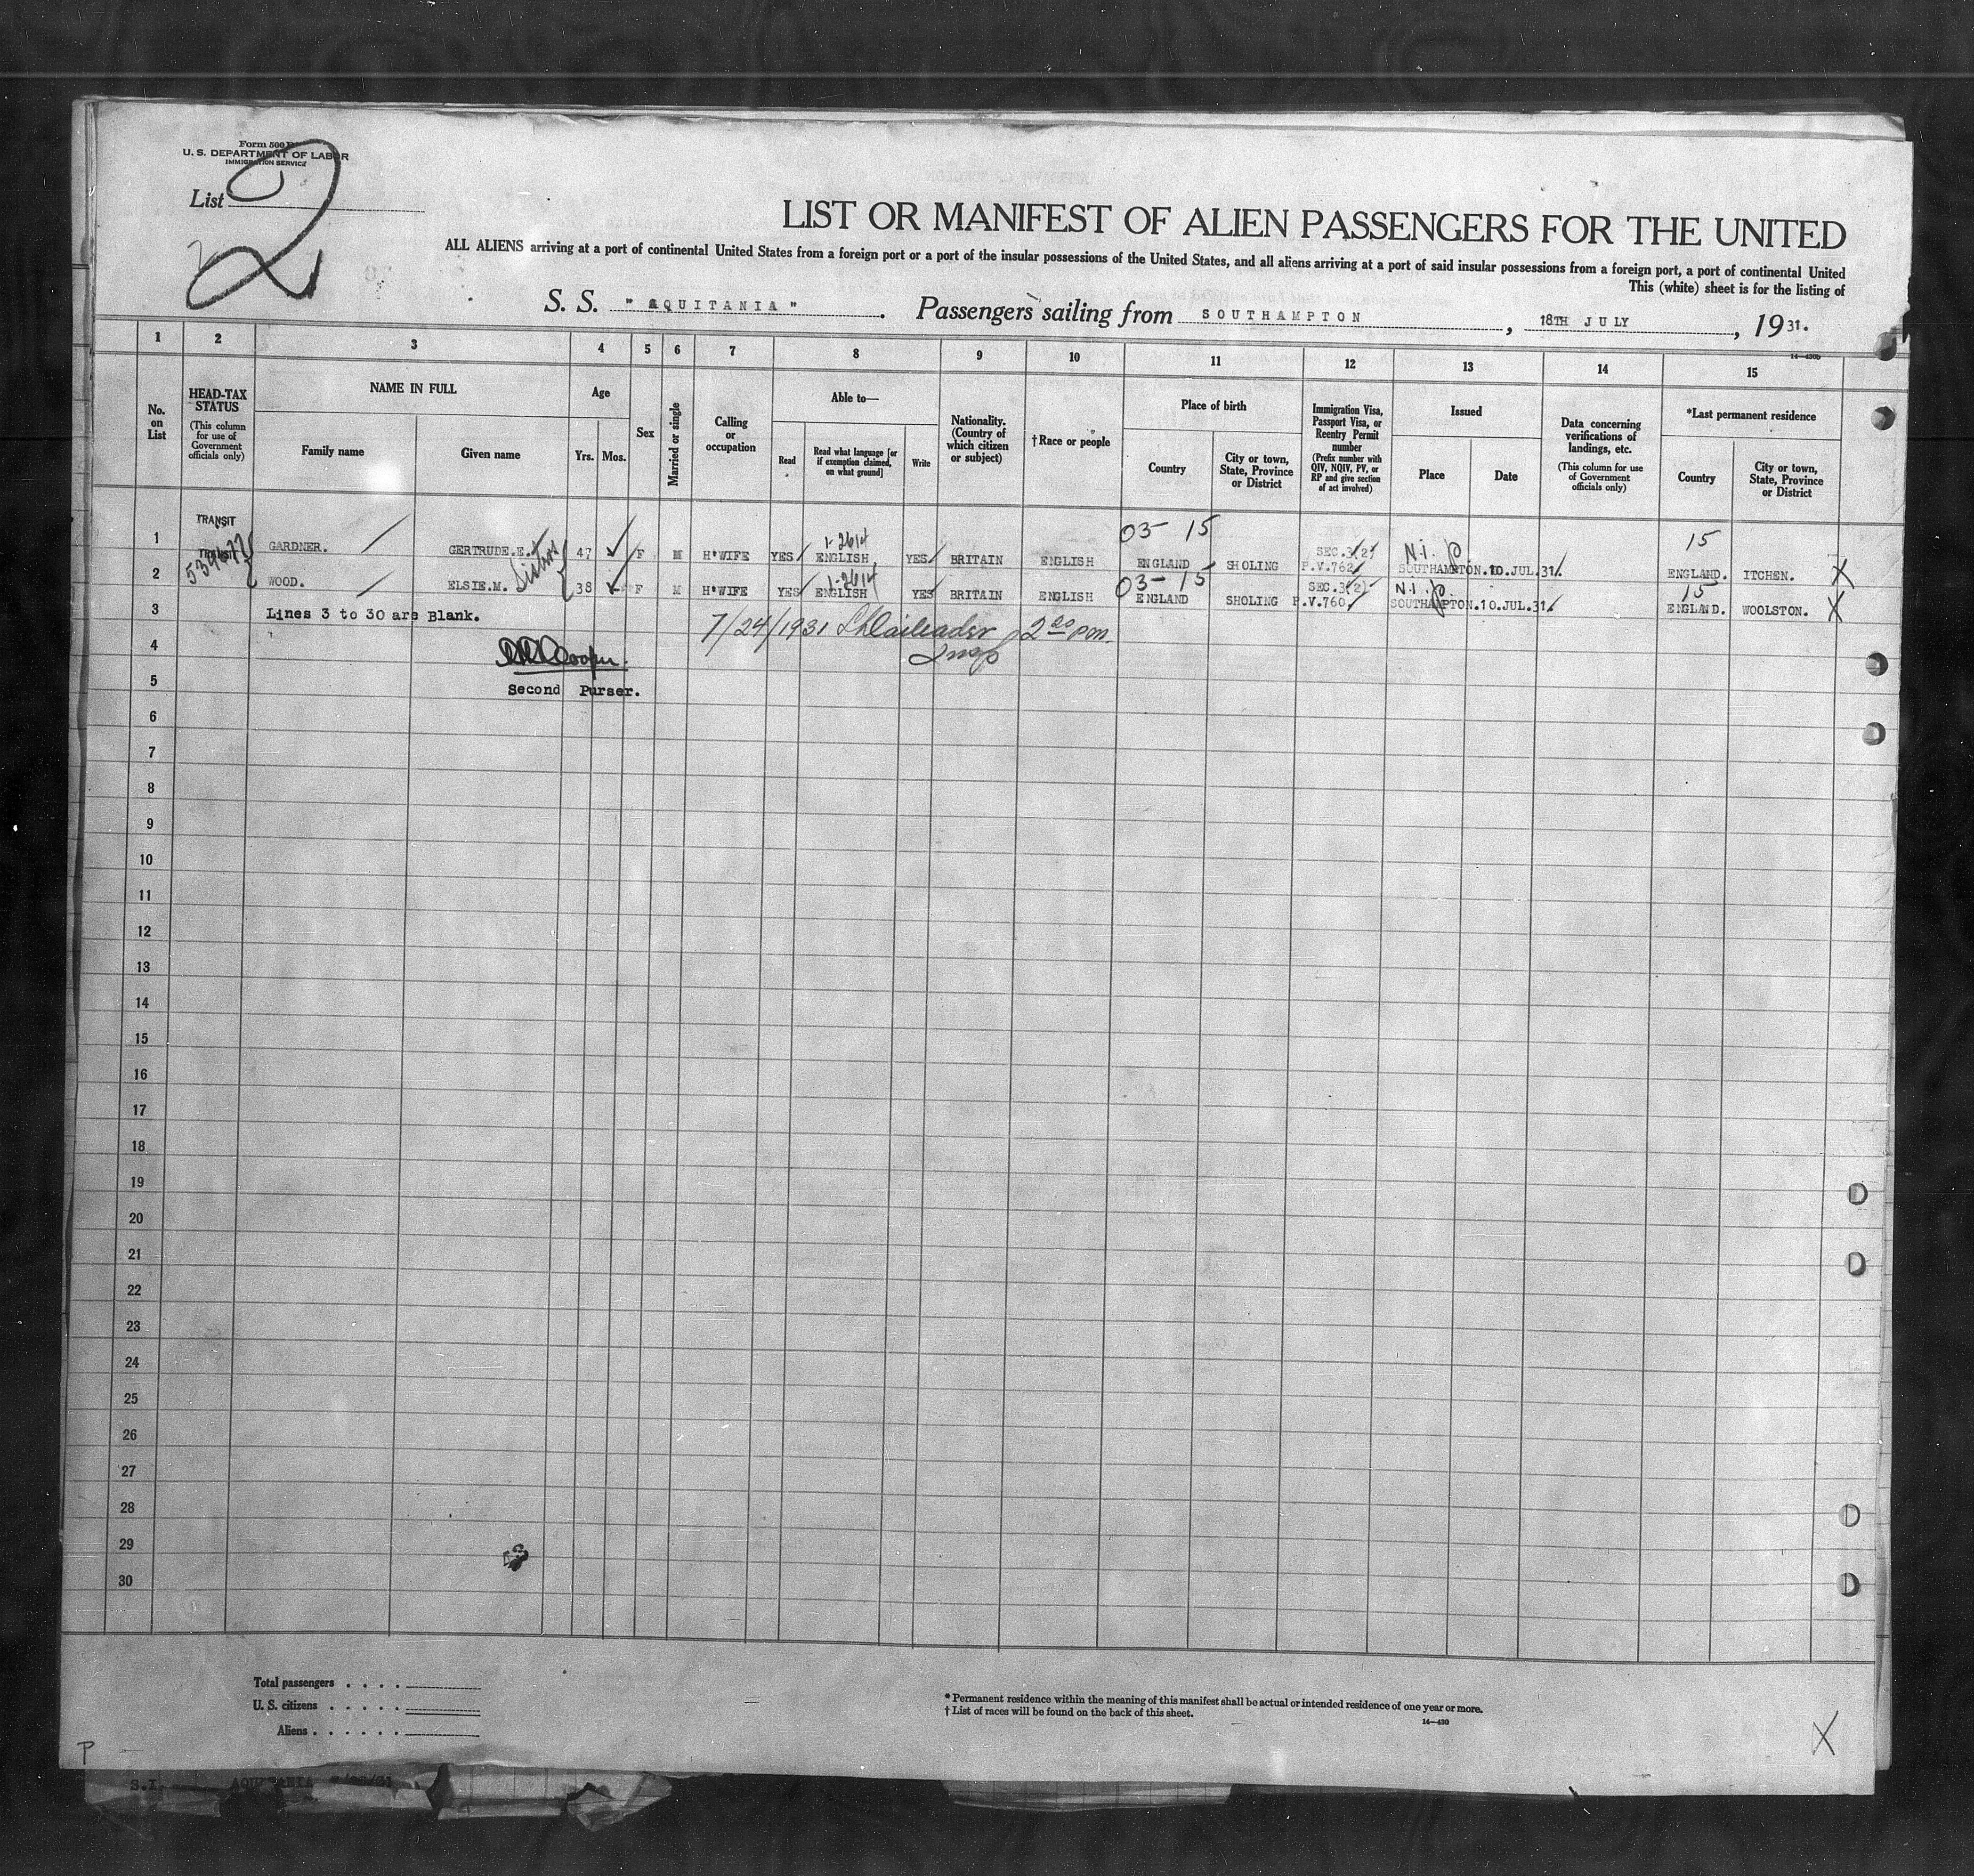 Form 500
U. S. DEPARTMENT OF LABOR
IMMIGRATION SERVICE
List 2
LIST OR MANIFEST OF ALIEN PASSENGERS FOR THE UNITED
ALL ALIENS arriving at a port of continental United States from a foreign port or a port of the insular possessions of the United States, and all aliens arriving at a port of said insular possessions from a foreign port, a port of continental United
This (white) sheet is for the listing of
S. S. "AQUITANIA". Passengers sailing from SOUTHAMPTON, 18TH JULY, 1931.
14—430b
1 2 3 4 5 6 7 8 9 10 11 12 13 14 15
No. on List
HEAD-TAX STATUS
(This column for use of Government officials only)
NAME IN FULL
Family name Given name
Age
Yrs. Mos.
Sex
Married or single
Calling or occupation
Able to—
Read
Read what language [or if exemption claimed, on what ground]
Write
Nationality. (Country of which citizen or subject)
†Race or people
Place of birth
Country
City or town, State, Province or District
Immigration Visa, Passport Visa, or Reentry Permit number
(Prefix number with QIV, NQIV, PV, or RP and give section of act involved)
Issued
Place Date
Data concerning verifications of landings, etc.
(This column for use of Government officials only)
*Last permanent residence
Country
City or town, State, Province or District
03- 15 15
TRANSIT 1-2614 SEC.3(2) N.i.
1 GARDNER. GERTRUDE.E. 47 F M H'WIFE YES ENGLISH YES BRITAIN ENGLISH ENGLAND SHOLING P.V.762 SOUTHAMPTON.10.JUL.31. ENGLAND. ITCHEN. X
Sisters
TRANSIT 1-2614 03- 15 SEC.3(2) N.i. 15
2 WOOD. ELSIE.M. 38 F M H'WIFE YES ENGLISH YES BRITAIN ENGLISH ENGLAND SHOLING P.V.760 SOUTHAMPTON.10.JUL.31. ENGLAND. WOOLSTON. X
3 Lines 3 to 30 are Blank.
7/24/1931 2 20 pm.
Insp
4 Cooper.
5 Second Purser.
6
7
8
9
10
11
12
13
14
15
16
17
18
19
20
21
22
23
24
25
26
27
28
29
30
Total passengers . . . .
U. S. citizens . . . . .
Aliens . . . . . .
* Permanent residence within the meaning of this manifest shall be actual or intended residence of one year or more.
† List of races will be found on the back of this sheet.
14—430
P X
S.I. AQUITANIA